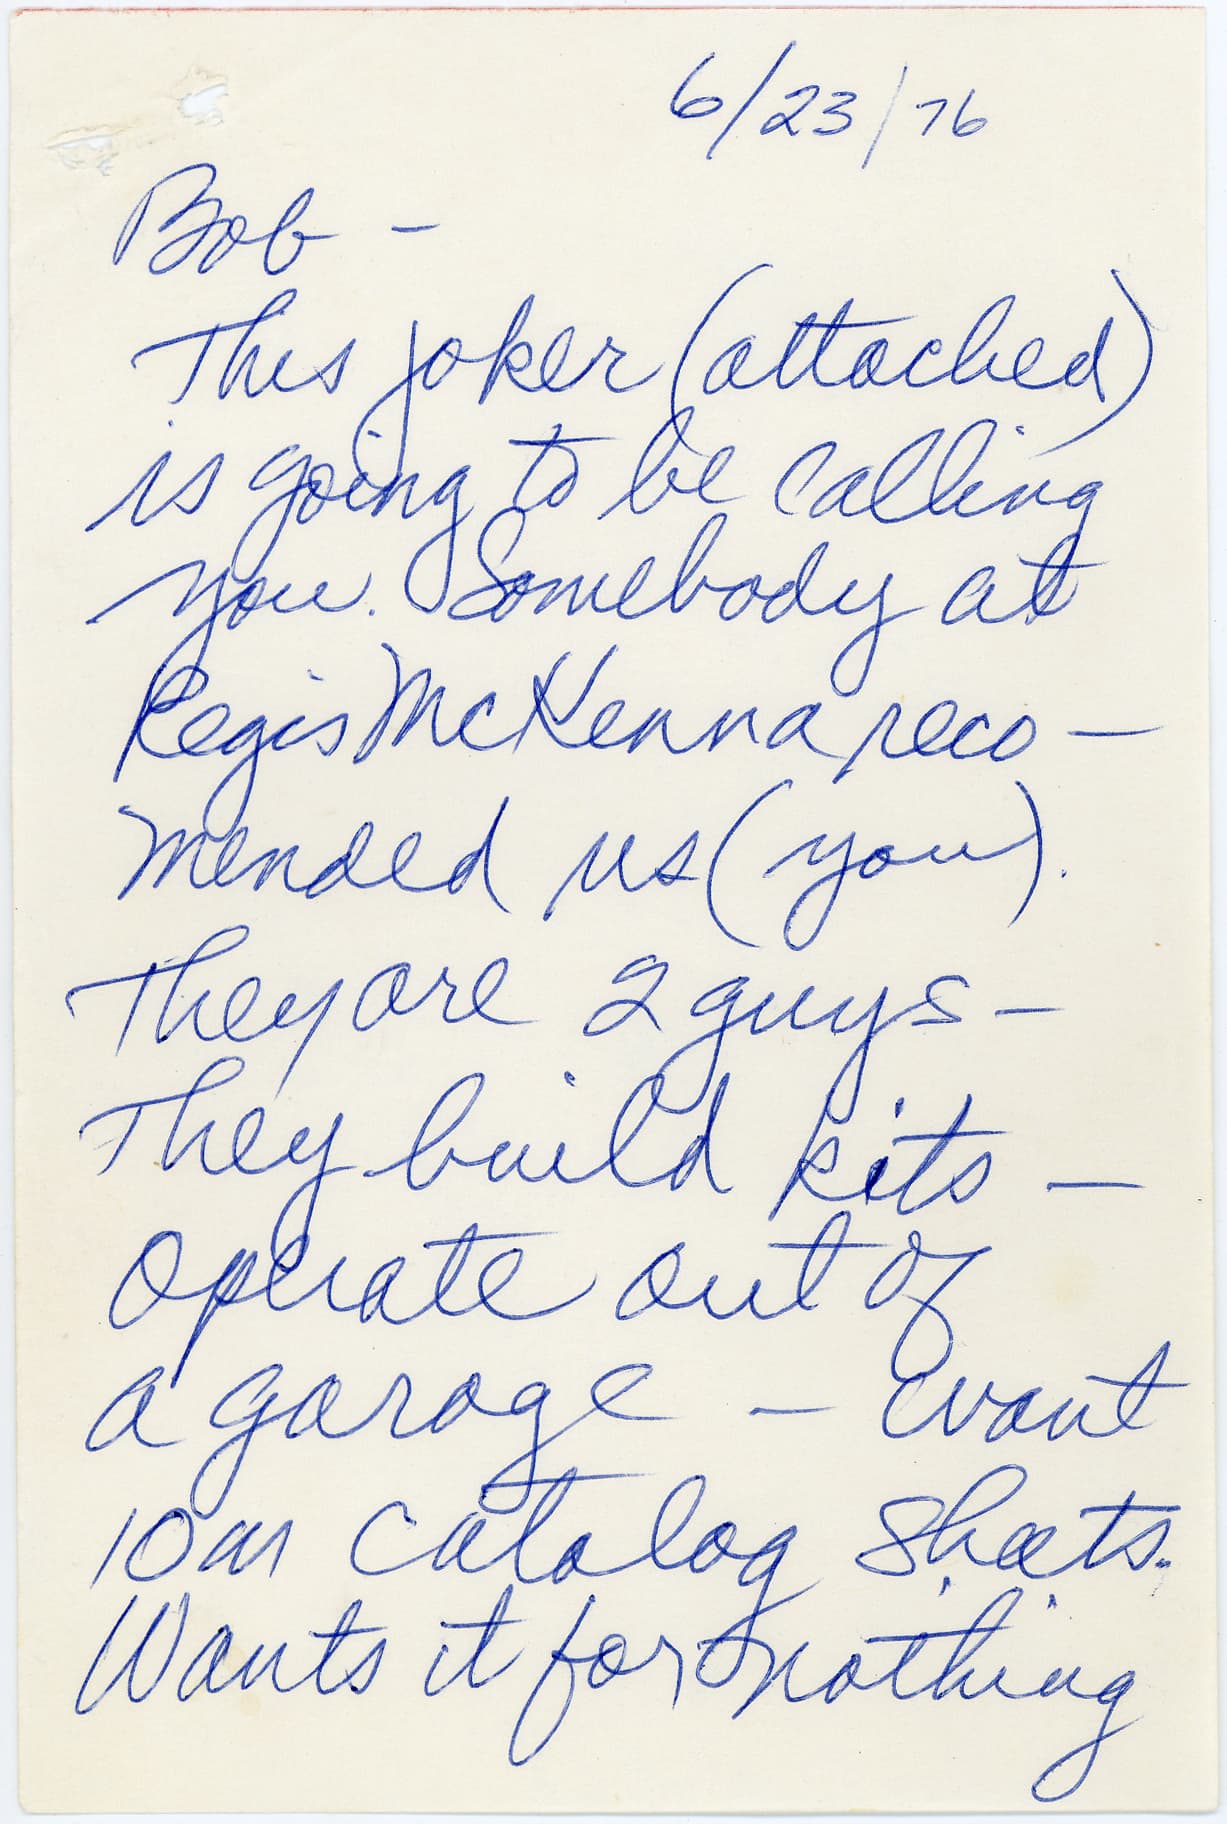 6/23/76
Bob -
This joker (attached)
is going to be calling
you. Somebody at
Regis McKenna reco -
mended us (you).
They are 2 guys -
They build kits -
Operate out of
a garage - want
10m catalog sheets.
Wants it for nothing